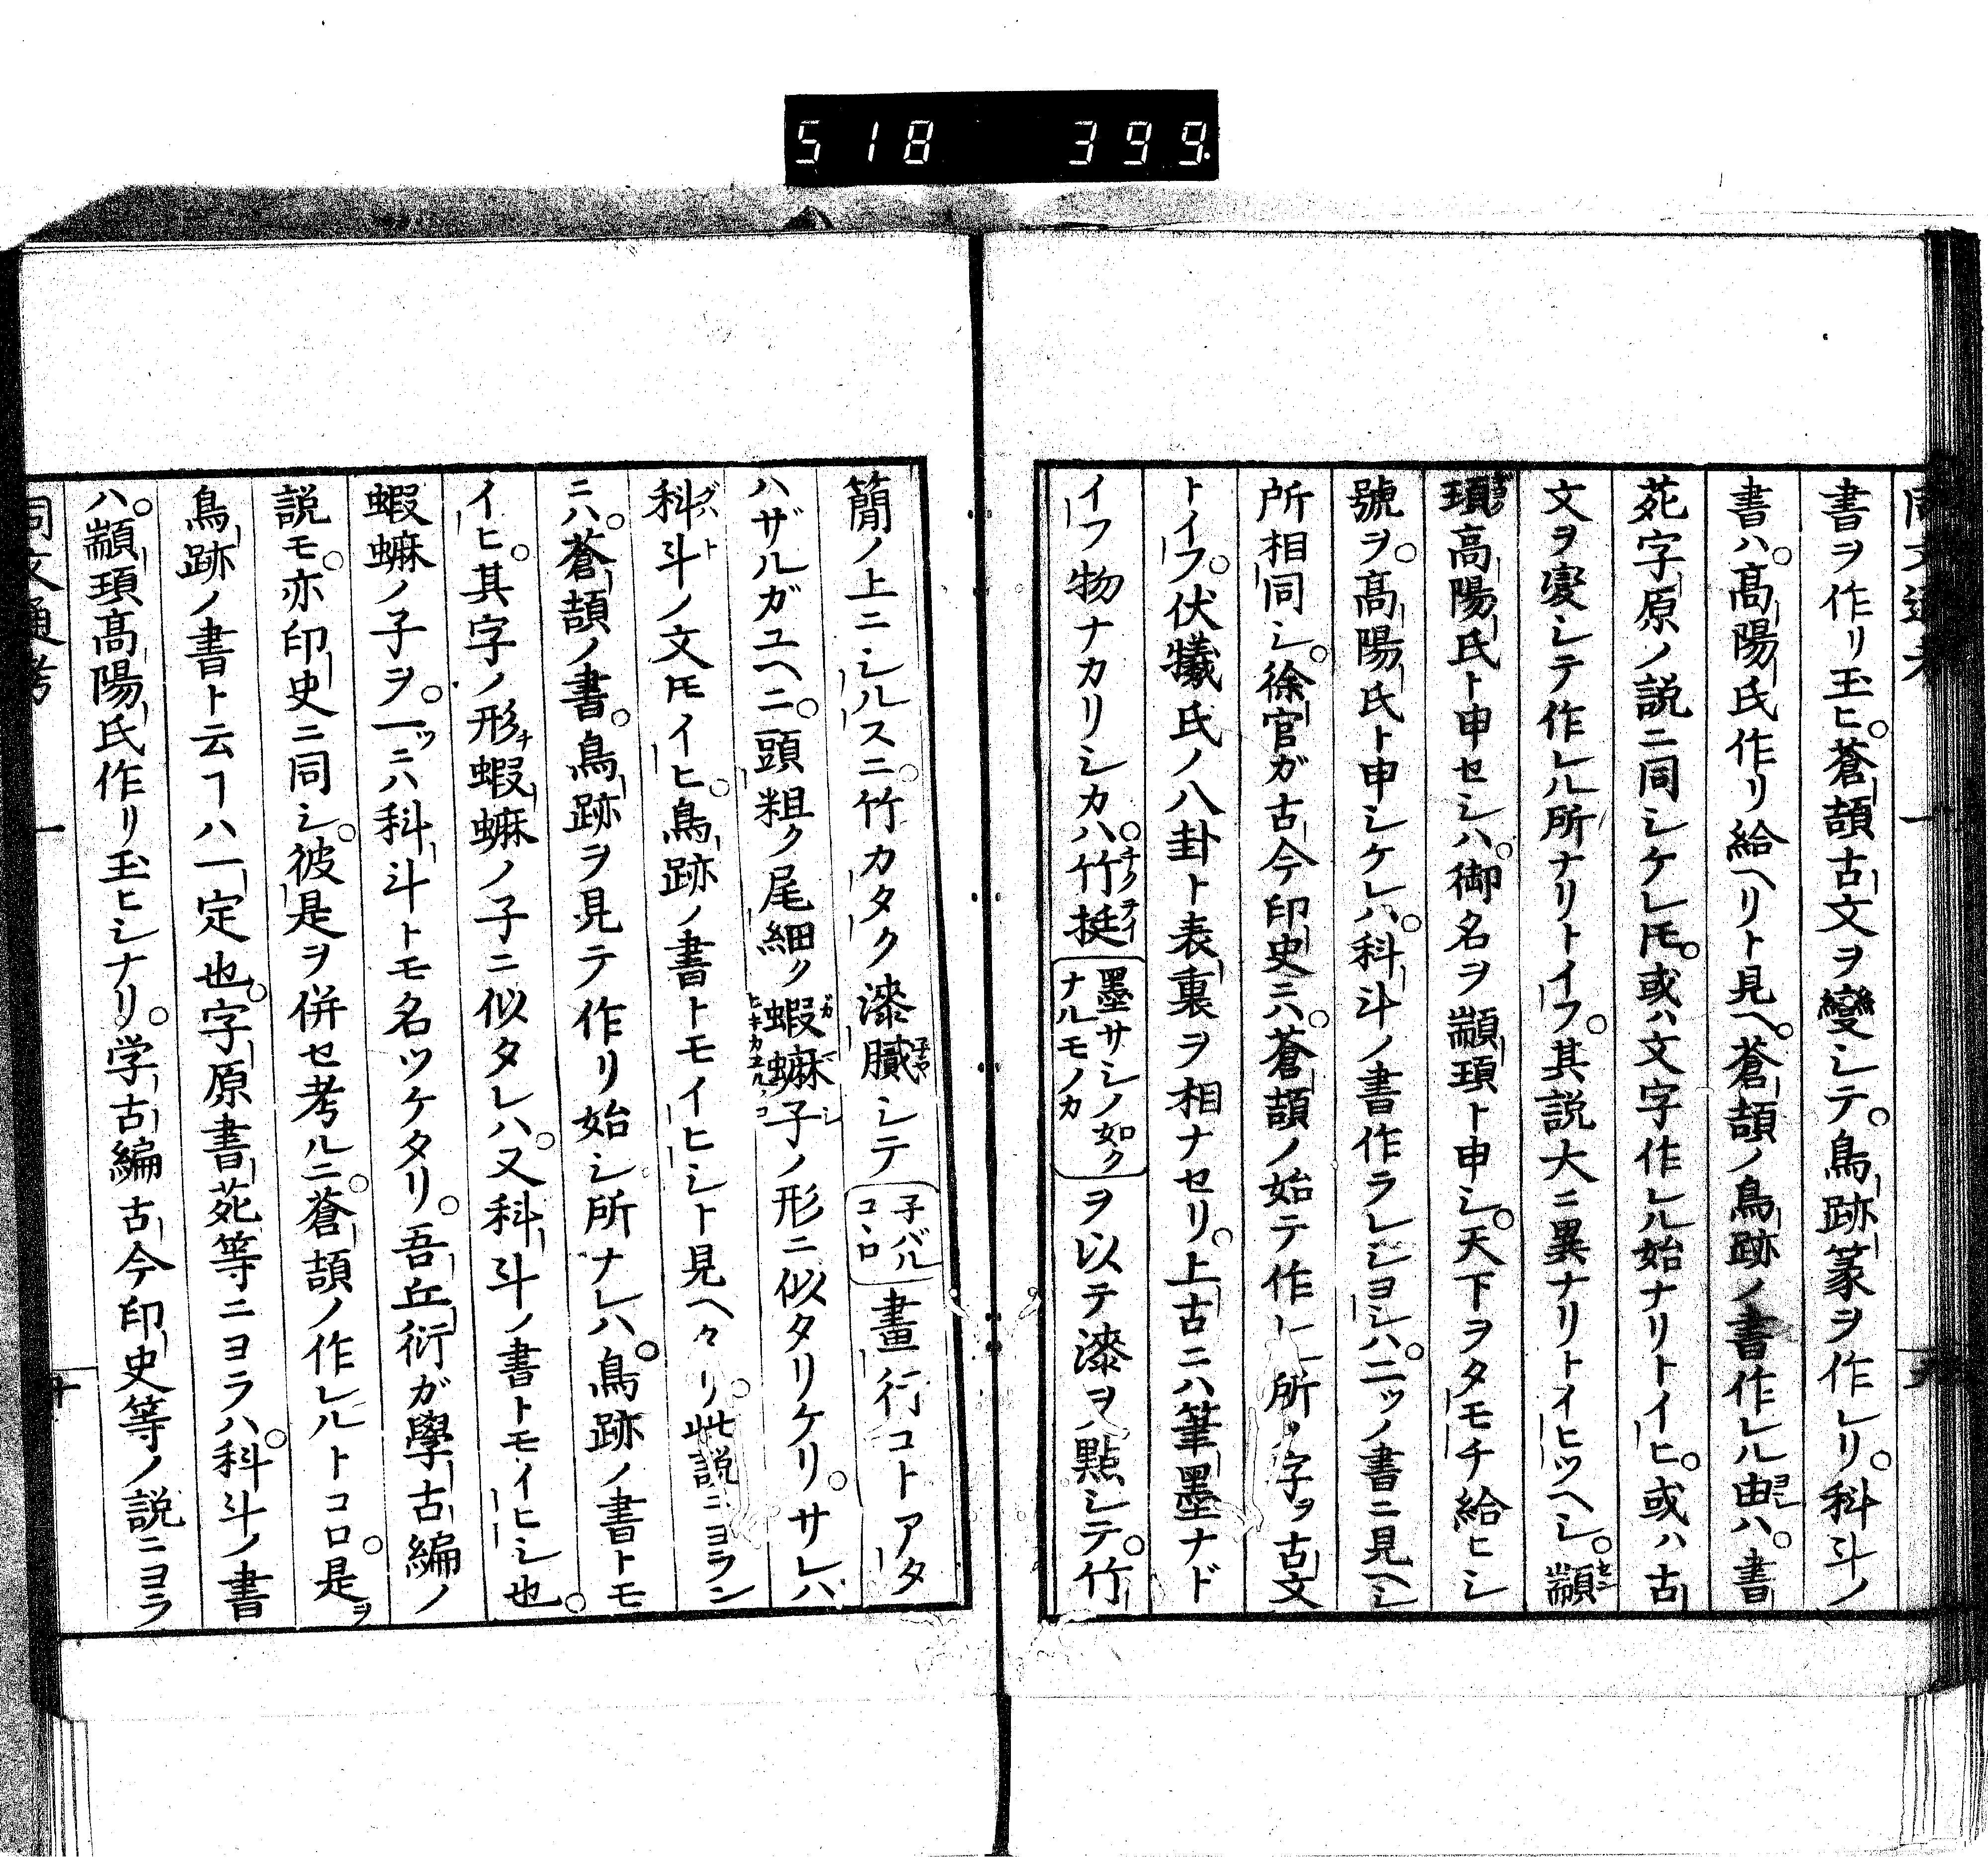 518 399
書ヲ作リ玉ヒ。蒼頡古文ヲ變シテ。鳥跡篆ヲ作レリ。科斗ノ
書ハ。高陽氏作リ給ヘリト見ヘ。蒼頡ノ鳥跡ノ書作レル由ハ。書
苑字原ノ説ニ同シケレ𪜈。或ハ文字作レル始ナリトイヒ。或ハ古
文ヲ変シテ作レル所ナリトイフ。其説大ニ異ナリトイヒツヘシ。顓
頊高陽氏ト申セシハ。御名ヲ顓頊ト申シ。天下ヲタモチ給ヒシ
號ヲ。高陽氏ト申シケレハ。科斗ノ書作ラレシヨシハ。二ツノ書ニ見ヘシ
所相同シ。徐官ガ古今印史ニハ。蒼頡ノ始テ作レ所ノ字ヲ古文
トイフ。伏犧氏ノ八卦ト表裏ヲ相ナセリ。上古ニハ筆墨ナド
イフ物ナカリシカハ。竹挺 墨サシノ如クナルモノカ ヲ以テ漆ヲ點シテ。竹
簡ノ上ニシルスニ。竹カタク漆膩シテ 子バルコヽロ 畫行コトアタ
ハザルガユヘニ。頭粗ク尾細ク蝦蟆子ノ形ニ似タリケリ。サレハ
科斗ノ文𪜈イヒ。鳥跡ノ書トモイヒシト見ヘ々リ。此説ニヨラン
ニハ。蒼頡ノ書。鳥跡ヲ見テ作リ始シ所ナレハ。鳥跡ノ書トモ
イヒ。其字ノ形蝦蟆ノ子ニ似タレハ。又科斗ノ書トモイヒシ也。
蝦蟆ノ子ヲ。一ツニハ科斗トモ名ツケタリ。吾丘衍ガ學古編ノ
説モ。亦印史ニ同シ。彼是ヲ併セ考ルニ。蒼頡ノ作レルトコロ。是ヲ
鳥跡ノ書ト云ヿハ一定也。字原書苑等ニヨラハ。科斗ノ書
ハ。顓頊高陽氏作リ玉ヒシナリ。学古編古今印史等ノ説ニヨラ
同文通考 一 十